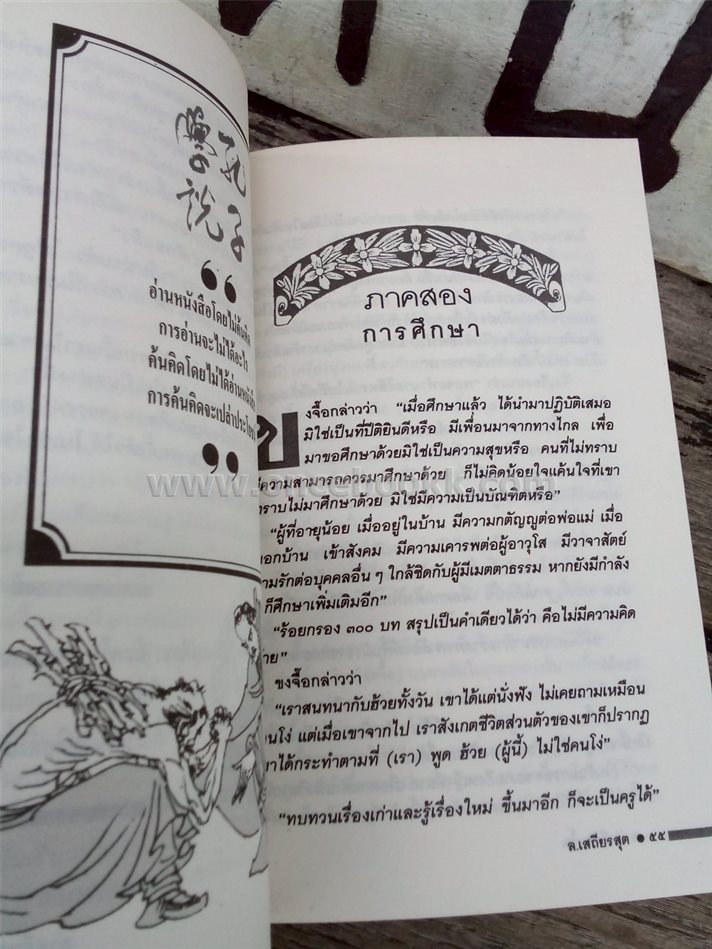 孔子
學說
“
อ่านหนังสือโดยไม่ค้นคิด
การอ่านจะไม่ได้อะไร
ค้นคิดโดยไม่ได้อ่านหนังสือ
การค้นคิดจะเปล่าประโยชน์
”
ภาคสอง
การศึกษา
ขงจื๊อกล่าวว่า “เมื่อศึกษาแล้ว ได้นำมาปฏิบัติเสมอ
มิใช่เป็นที่ปีติยินดีหรือ มีเพื่อนมาจากทางไกล เพื่อ
มาขอศึกษาด้วยมิใช่เป็นความสุขหรือ คนที่ไม่ทราบ
ความสามารถควรมาศึกษาด้วย ก็ไม่คิดน้อยใจแค้นใจที่เขา
ทราบไม่มาศึกษาด้วย มิใช่มีความเป็นบัณฑิตหรือ”
“ผู้ที่อายุน้อย เมื่ออยู่ในบ้าน มีความกตัญญูต่อพ่อแม่ เมื่อ
ออกบ้าน เข้าสังคม มีความเคารพต่อผู้อาวุโส มีวาจาสัตย์
วามรักต่อบุคคลอื่น ๆ ใกล้ชิดกับผู้มีเมตตาธรรม หากยังมีกำลัง
ก็ศึกษาเพิ่มเติมอีก”
“ร้อยกรอง ๓๐๐ บท สรุปเป็นคำเดียวได้ว่า คือไม่มีความคิด
าย”
ขงจื๊อกล่าวว่า
“เราสนทนากับฮ้วยทั้งวัน เขาได้แต่นั่งฟัง ไม่เคยถามเหมือน
นโง่ แต่เมื่อเขาจากไป เราสังเกตชีวิตส่วนตัวของเขาก็ปรากฏ
าได้กระทำตามที่ (เรา) พูด ฮ้วย (ผู้นี้) ไม่ใช่คนโง่”
“ทบทวนเรื่องเก่าและรู้เรื่องใหม่ ขึ้นมาอีก ก็จะเป็นครูได้”
ล.เสถียรสุต ● ๕๕